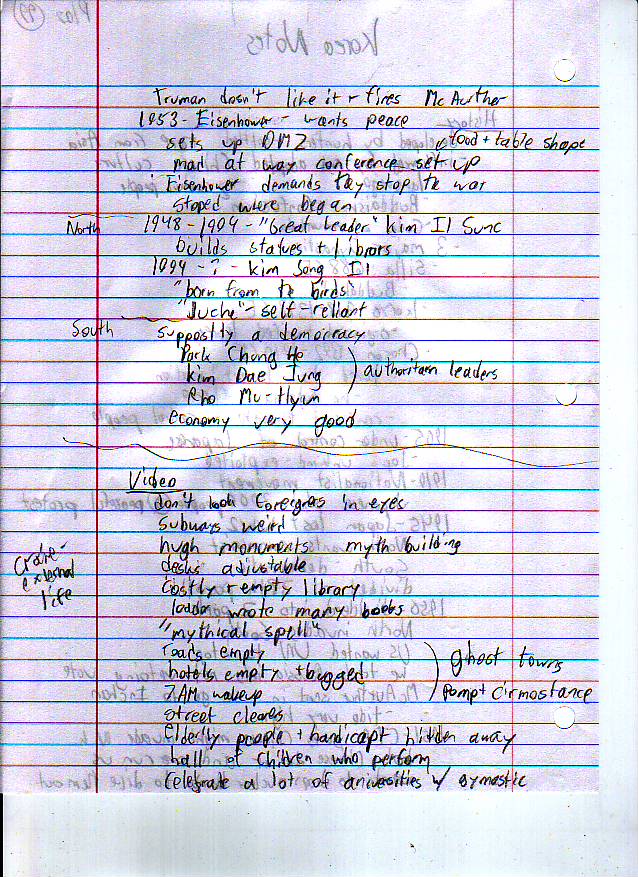 Truman doesn't like it + fires McAurther
1953 - Eisenhower - wants peace
sets up DMZ
food + table shape
mad at way conference set up
Eisenhower demands they stop the war
stoped where began
North 1948-1994 - "Great Leader" Kim Il Sunc
builds statues + librars
1994 - ? - Kim Song Il
"born from te birds"
"Juche" - self-reliant
South suppositly a democracy
Park Chung He
Kim Dae Jung
Rho Mu-Hyun
authoritaen leaders
economy very good
Video
don't look foreigners in eyes
Subways weird
hugh monuments myth building
desks adjustable
Crane - external life
costly + empty library
leader wrote many books
"mythical spell"
roads empty
hotels empty + bugged
ghost towns
7AM wakeup
Pomp + Cirmostance
street cleaners
Elderly people + handicapt hidden away
hall of children who perform
Celebrate a lot of aniversities w/ gymastic